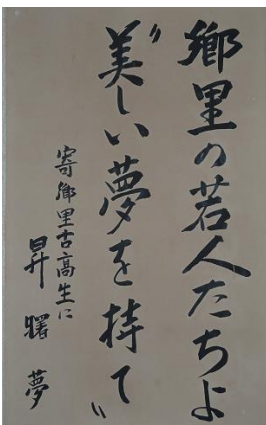 郷里の若人たちよ
〝美しい夢を持て〟
寄郷里古高生に
昇曙夢